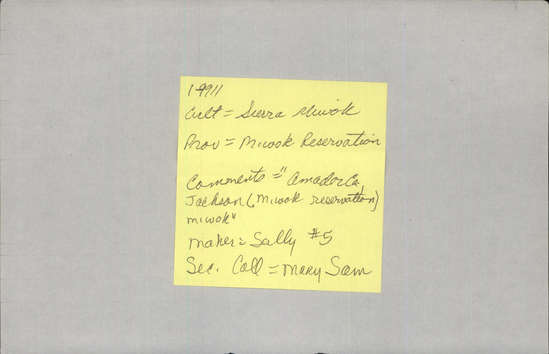 1-9911
Cult = Sierra Miwok
Prov = Miwok Reservation
Comments = "Amador Co,
Jackson (Miwok reservation)
Miwok"
Maker = Sally #5
Sec. Coll = Mary Sam